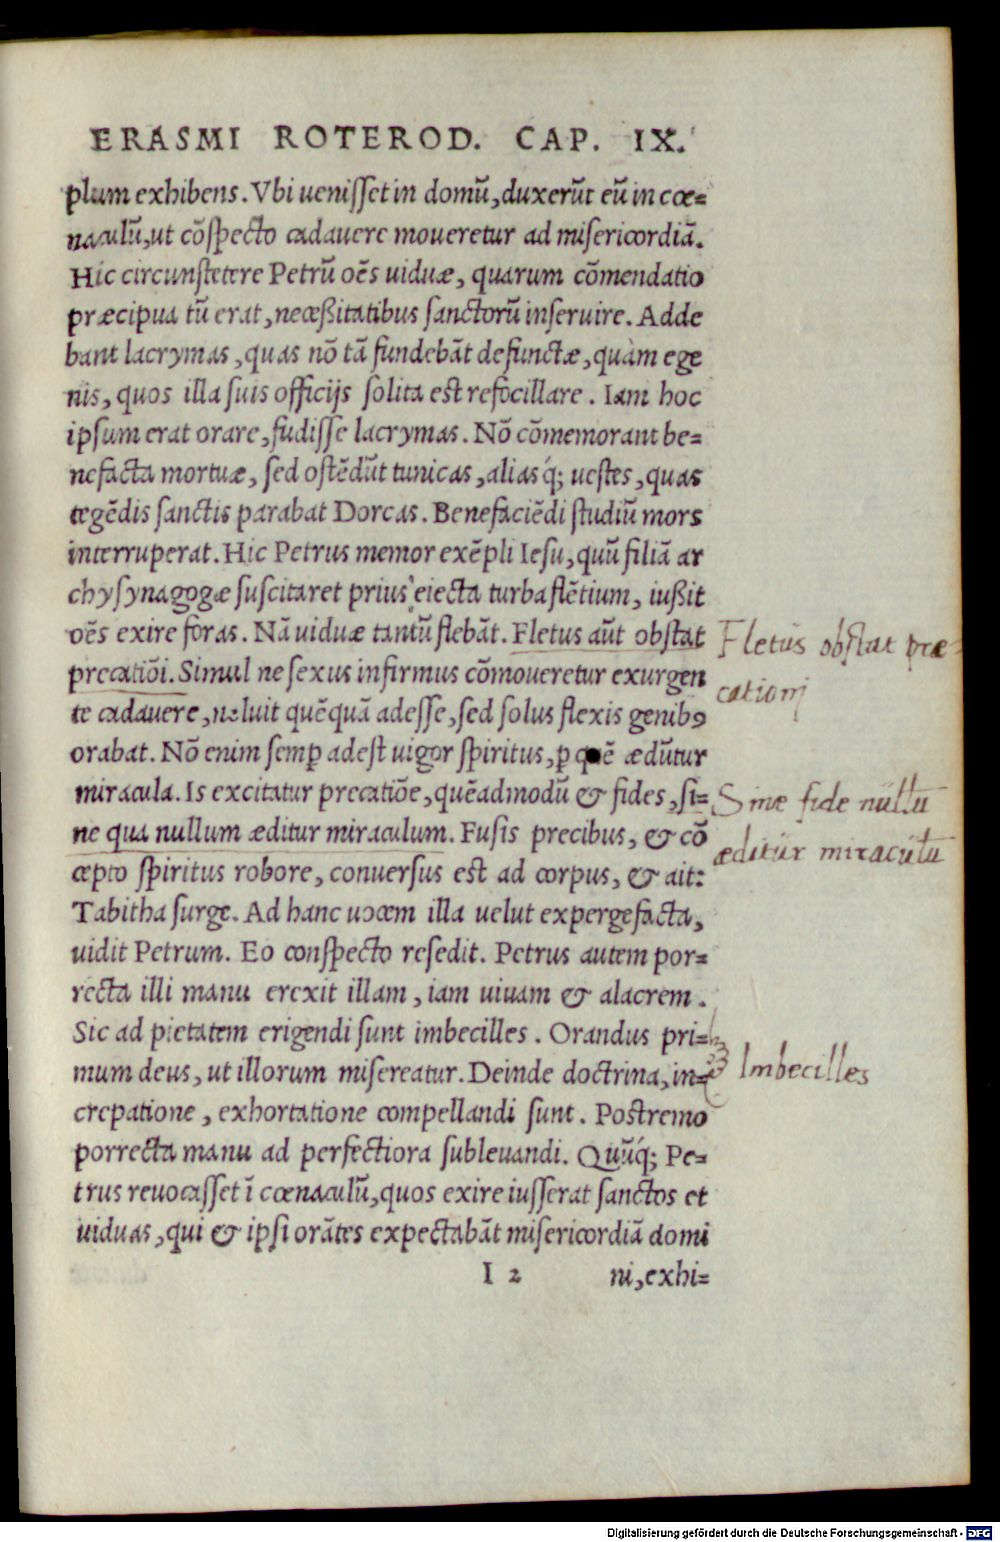 ERASMI ROTEROD. CAP. IX.
plum exhibens. Vbi ueniſſet in domū, duxerūt eū in cœ=
naculū, ut cōſpecto cadauere moueretur ad miſericordiā.
Hic circunſtetere Petrū oēs uiduæ, quarum cōmendatio
præcipua tū erat, neceßitatibus ſanctorū inſeruire. Adde
bant lacrymas, quas nō tā fundebāt defunctæ, quàm ege
nis, quos illa ſuis officijs ſolita eſt refocillare. Iam hoc
ipſum erat orare, fudiſſe lacrymas. Nō cōmemorant be=
nefacta mortuæ, ſed oſtēdūt tunicas, alias q́; ueſtes, quas
tegēdis ſanctis parabat Dorcas. Benefaciēdi ſtudiū mors
interruperat. Hic Petrus memor exēpli Ieſu, quū filiā ar
chyſynagogæ ſuſcitaret prius eiecta turba flētium, iußit
oēs exire foras. Nā uiduæ tantū flebāt. Fletus aūt obſtat
precatiōi. Simul ne ſexus infirmus cōmoueretur exurgen
te cadauere, noluit quēquā adeſſe, ſed ſolus flexis genibꝯ
orabat. Nō enim ſemp̱ adeſt uigor ſpiritus, p̱ quē ædūtur
miracula. Is excitatur precatiōe, quēadmodū & fides, ſi=
ne qua nullum æditur miraculum. Fuſis precibus, & cō
cepto ſpiritus robore, conuerſus est ad corpus, & ait:
Tabitha ſurge. Ad hanc uocem illa uelut expergefacta,
uidit Petrum. Eo conſpecto reſedit. Petrus autem por=
recta illi manu erexit illam, iam uiuam & alacrem.
Sic ad pietatem erigendi ſunt imbecilles. Orandus pri=
mum deus, ut illorum miſereatur. Deinde doctrina, in=
crepatione, exhortatione compellandi ſunt. Poſtremo
porrecta manu ad perfectiora ſubleuandi. Quūq́; Pe=
trus reuocaſſet ī cœnaculū, quos exire iuſſerat ſanctos et
uiduas, qui & ipſi orātes expectabāt miſericordiā domi
I 2 ni, exhi=
Fletus obſtat præ=
cationi
Sine fide nullū
æditur miraculū
Imbecilles
Digitalisierung gefördert durch die Deutsche Forschungsgemeinschaft - DFG